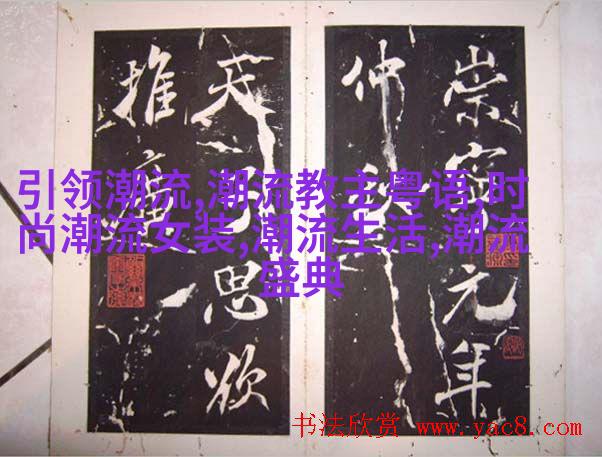 崇寧元年
仲
思欲
推廣
引领潮流,潮流教主粤语,时
尚潮流女装,潮流生活,潮流
盛典
书法欣赏 www.yac8.com